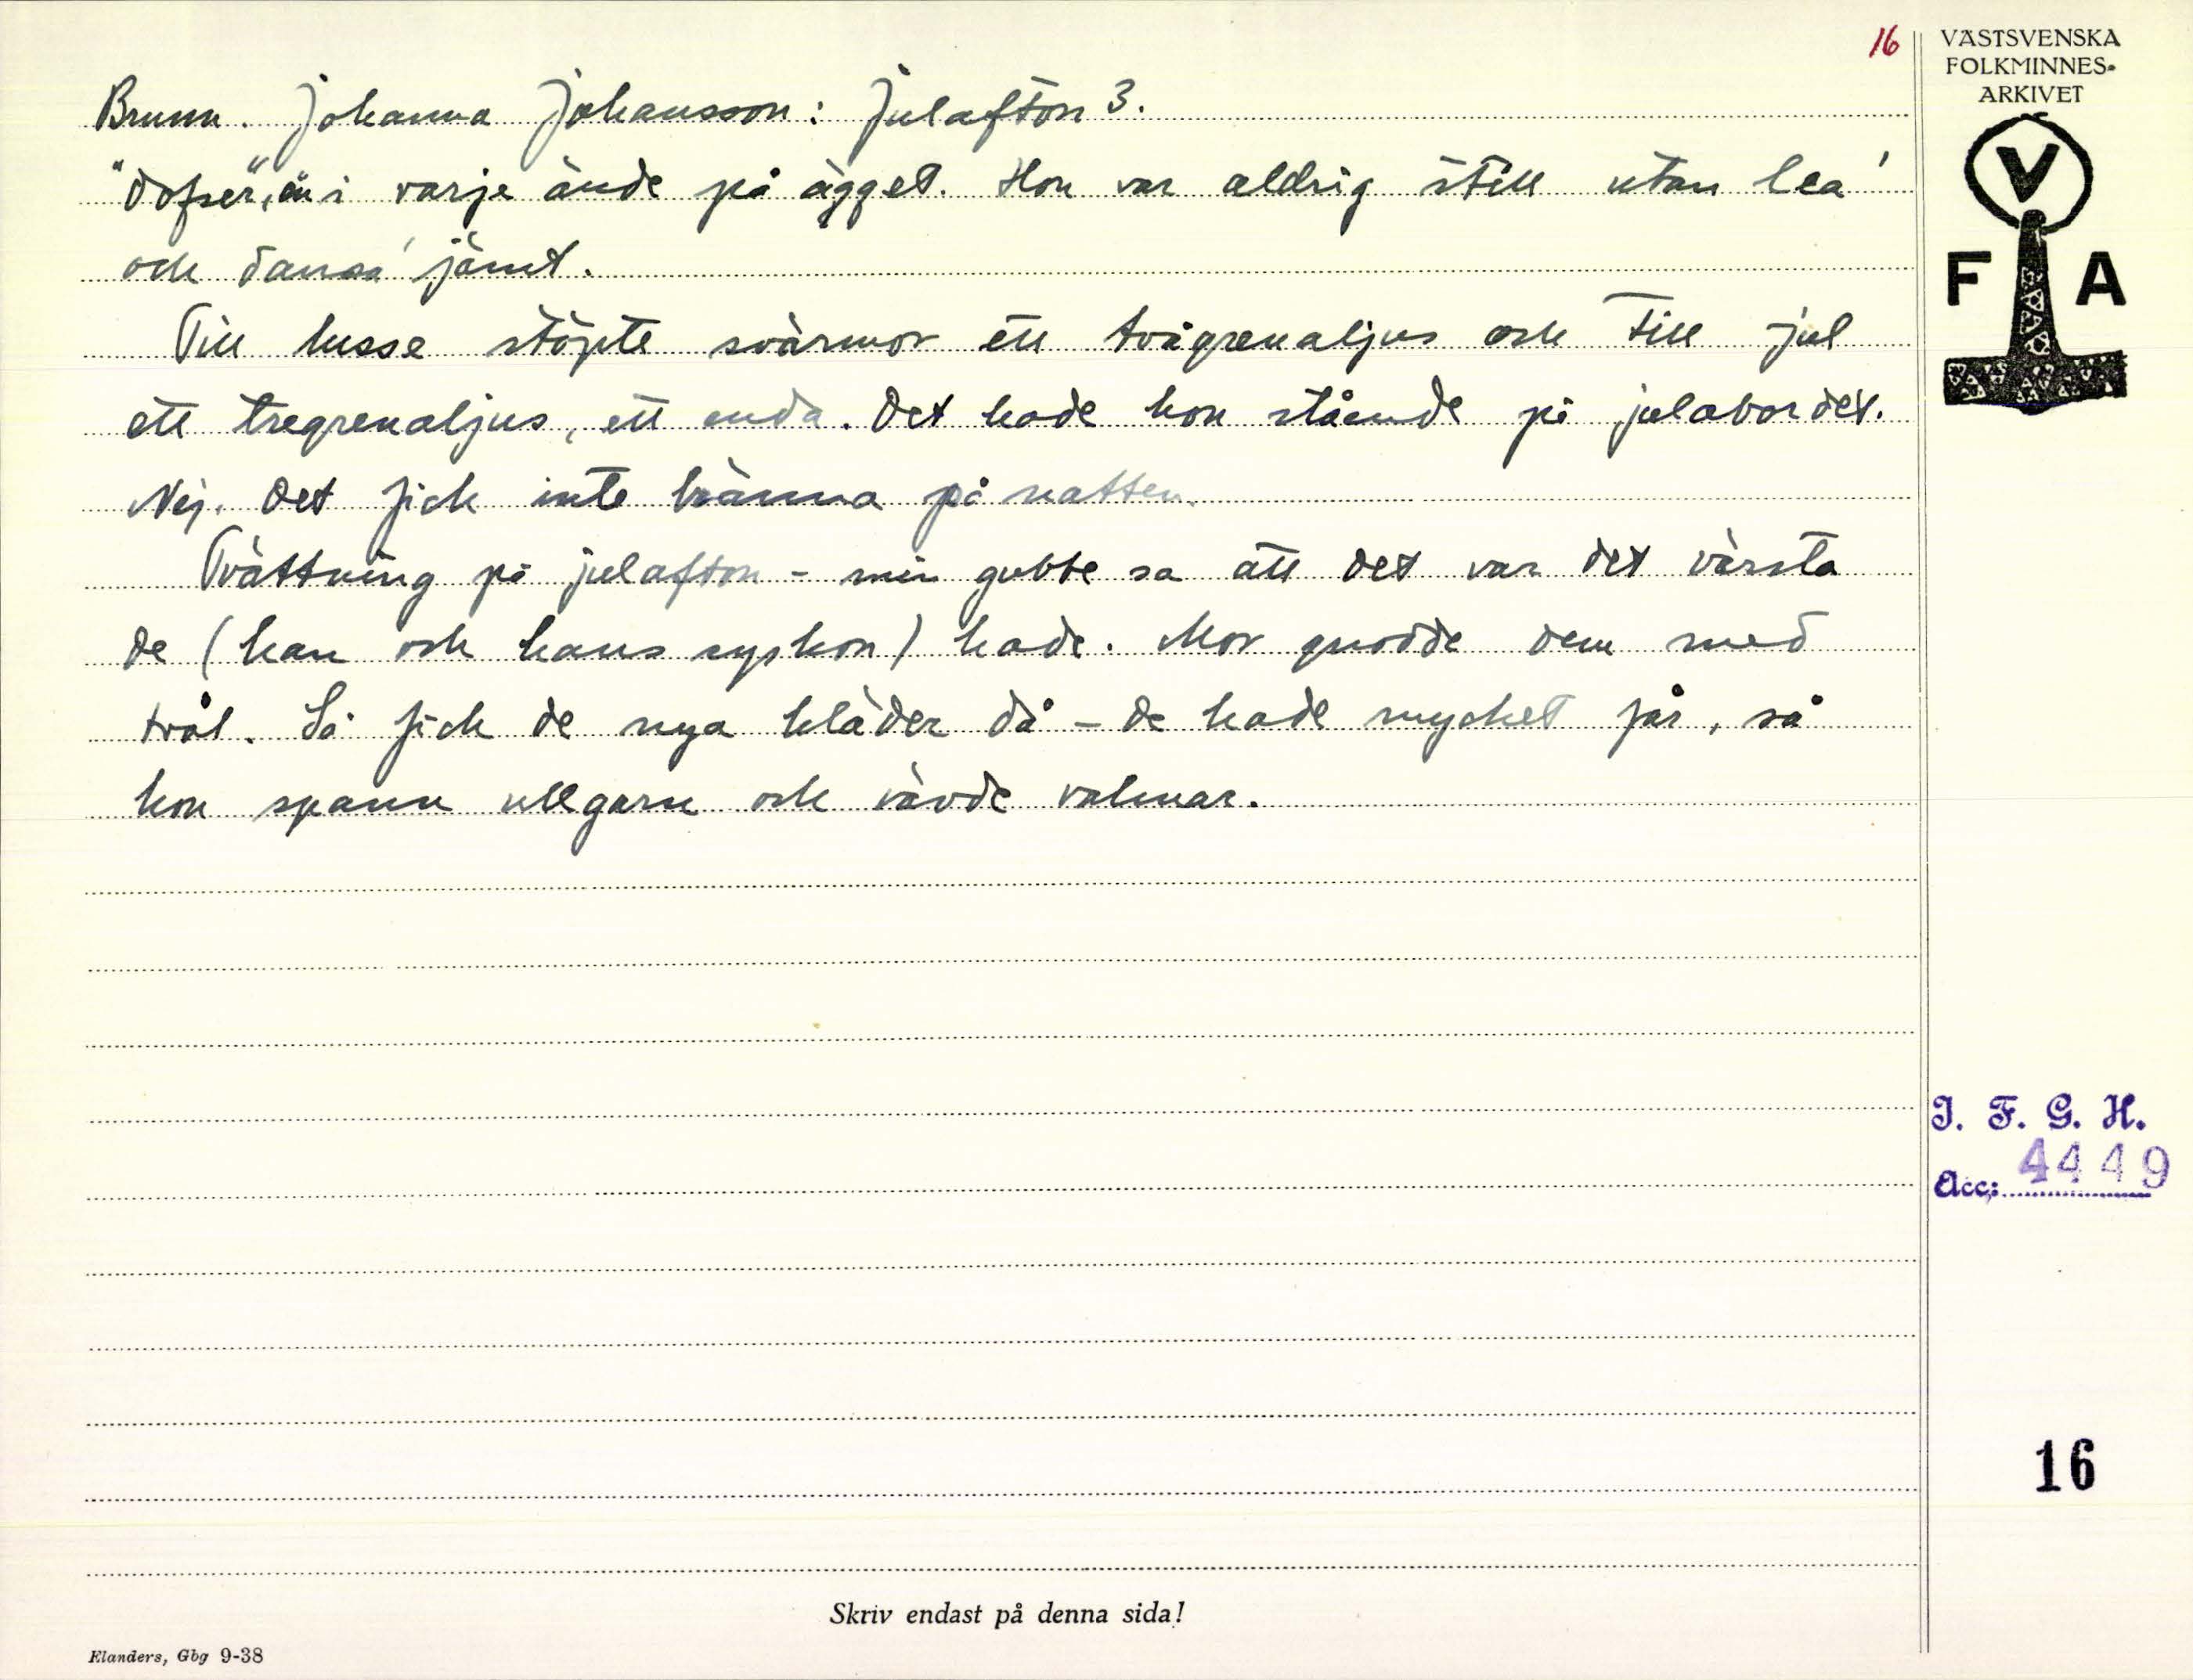 16
VÄSTSVENSKA
FOLKMINNES-
ARKIVET
V
F A
Brunn. Johanna Johansson: Julafton 3.
"dofser", en i varje ände på ägget. Hon var aldrig still utan lea'
och dansa' jämt.
Till lusse stöpte svärmor ett tvågrenaljus och till jul
ett tregrenaljus, ett enda. Det hade hon stående på julabordet.
Nej. Det fick inte bränna på natten.
Tvättning på julafton - min gubbe sa att det var det värsta
de (han och hans syskon) hade. Mor gnodde dem med
tvål. Så fick de nya kläder då - de hade mycket får, så
hon spann ullgarn och vävde valmar.
I. F. G. H.
Acc: 4449
16
Skriv endast på denna sida!
Elanders, Gbg 9-38